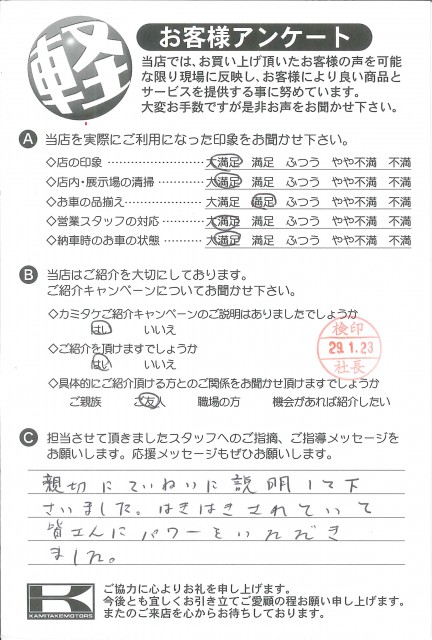 軽
お客様アンケート
当店では、お買い上げ頂いたお客様の声を可能
な限り現場に反映し、お客様により良い商品と
サービスを提供する事に努めています。
大変お手数ですが是非お声をお聞かせ下さい。
A 当店を実際にご利用になった印象をお聞かせ下さい。
◇店の印象 ……………………… 大満足 満足 ふつう やや不満 不満
◇店内・展示場の清掃 ………… 大満足 満足 ふつう やや不満 不満
◇お車の品揃え………………… 大満足 満足 ふつう やや不満 不満
◇営業スタッフの対応 ………… 大満足 満足 ふつう やや不満 不満
◇納車時のお車の状態 ………… 大満足 満足 ふつう やや不満 不満
B 当店はご紹介を大切にしております。
ご紹介キャンペーンについてお聞かせ下さい。
◇カミタケご紹介キャンペーンのご説明はありましたでしょうか
はい いいえ
◇ご紹介を頂けますでしょうか
はい いいえ
検印
29.1.23
社長
◇具体的にご紹介頂ける方とのご関係をお聞かせ頂けますでしょうか
ご親族 ご友人 職場の方 機会があれば紹介したい
C 担当させて頂きましたスタッフへのご指摘、ご指導メッセージを
お願いします。応援メッセージもぜひお願いします。
親切にていねいに説明して下
さいました。はきはきされていて
皆さんにパワーをいただき
ました。
K
KAMITAKEMOTORS
ご協力に心よりお礼を申し上げます。
今後とも宜しくお引き立てご愛顧の程お願い申し上げます。
またのご来店を心からお待ちしております。